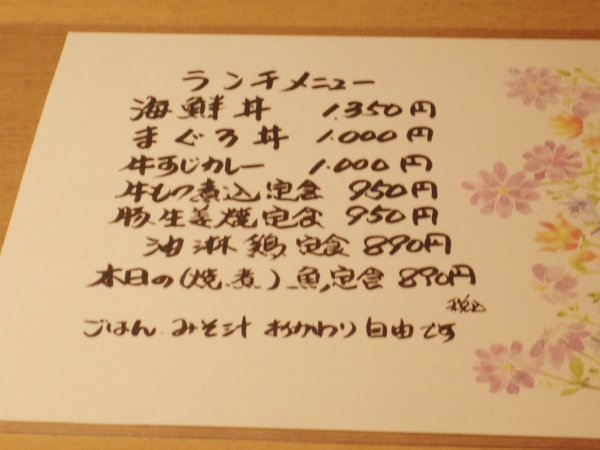 ランチメニュー
海鮮丼 1.350円
まぐろ丼 1.000円
牛すじカレー 1.000円
牛もつ煮込定食 950円
豚生姜焼定食 950円
油淋鶏定食 890円
本日の(焼.煮)魚定食 890円
税込
ごはん.みそ汁 おかわり自由です